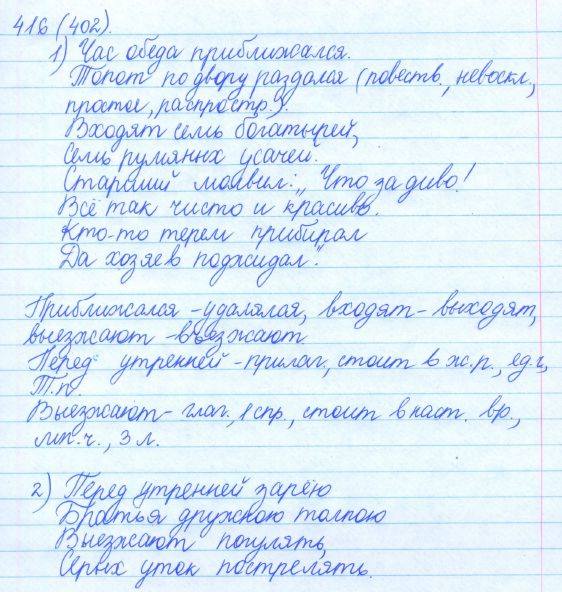 416 (402).
1) Час обеда приближался.
Топот по двору раздался (повеств., невоскл.,
простое, распростр.).
Входят семь богатырей,
Семь румяных усачей.
Старший молвил: „Что за диво!
Всё так чисто и красиво.
Кто-то терем прибирал
Да хозяев поджидал".
Приближался - удалялся, входят - выходят,
выезжают - въезжают
Перед утренней - прилаг., стоит в ж.р., ед.ч.,
Т.п.
Выезжают - глаг., 1 спр., стоит в наст. вр.,
мн.ч., 3 л.
2) Перед утренней зарёю
Братья дружною толпою
Выезжают погулять,
Серых уток пострелять.